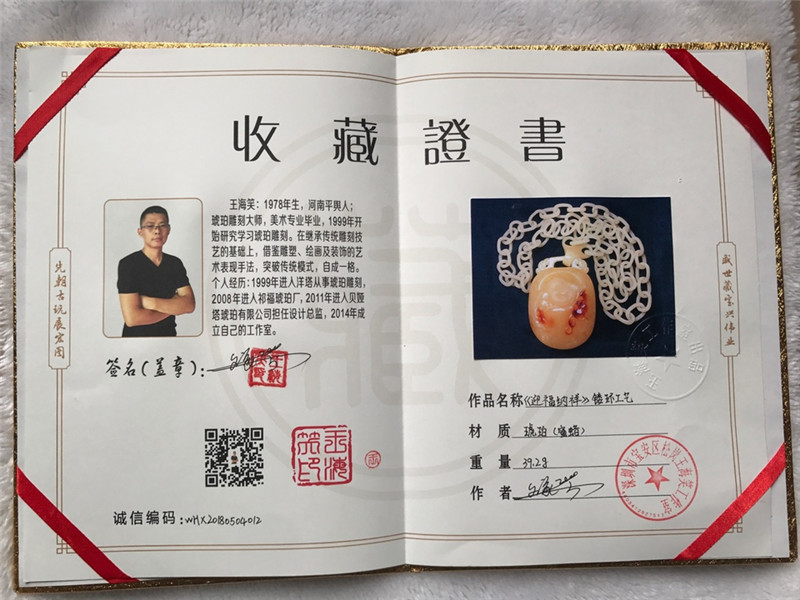 收藏證書
王海笑：1978年生，河南平舆人；
琥珀雕刻大师，美术专业毕业，1999年开
始研究学习琥珀雕刻。在继承传统雕刻技
艺的基础上，借鉴雕塑、绘画及装饰的艺
术表现手法，突破传统模式，自成一格。
个人经历：1999年进入洋塔从事琥珀雕刻，
2008年进入祁福琥珀厂，2011年进入贝娅
塔琥珀有限公司担任设计总监，2014年成
立自己的工作室。
签名（盖章）：
诚信编码：WHX20180504012
先朝古玩展宏图
藏
作品名称《迎福纳祥》链环工艺
材 质 琥珀（蜜蜡）
重 量 39.2g
作 者
盛世藏宝兴伟业